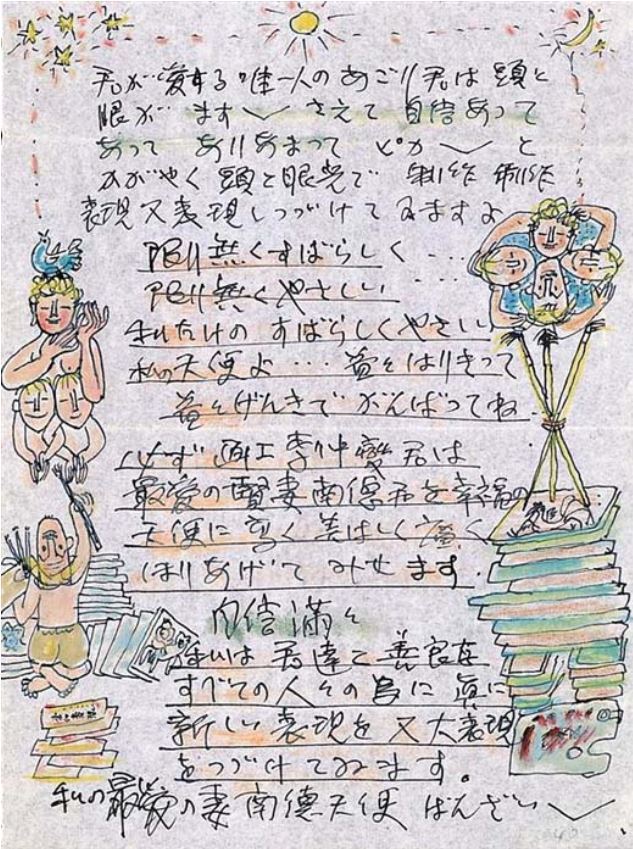 君が愛する唯一人のあごり君は 頭と
眼が ます〱 さえて 自信あって
あって ありあまって ピカ〱 と
かがやく 頭と眼光で 制作 制作
表現又表現しつづけてゐますよ
限り無くすばらしく ‥‥
限り無くやさしい
私だけの すばらしくやさしい
私の天使よ… 益々はりきって
益々げんきで がんばってね
必ず 画工李仲燮君は
最愛の賢妻南德君を幸福の
天使に 高く 美しく 広く
ほりあげて みせます
自信満々
私は 君達と 善良な
すべての人々の為に 真に
新しい 表現を 又 大表現
をつづけてゐます。
私の最愛の妻南德天使 ばんざい〱